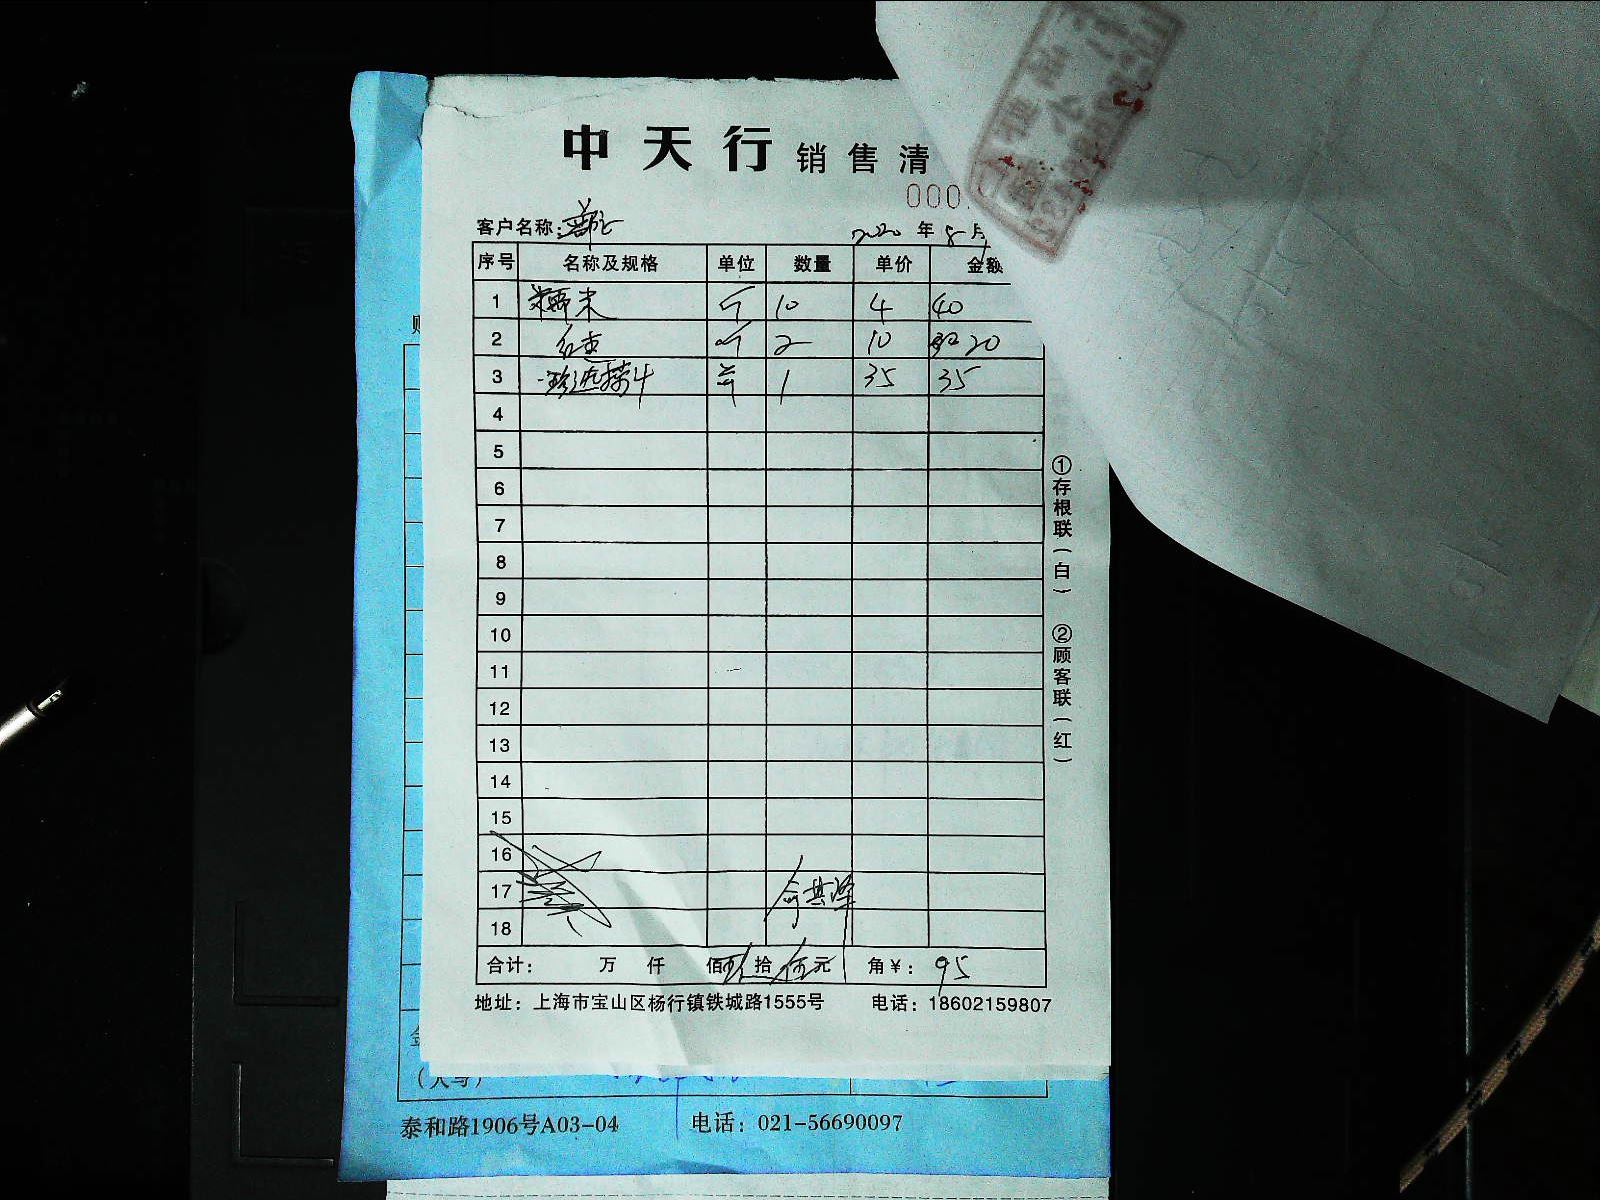 中天行 销售清
000
客户名称:
2020 年 8 月
序号 名称及规格 单位 数量 单价 金额
1 斤 10 4 40
2 红枣 斤 2 10 20
3 1 35 35
4
5
6
7
8
9
10
11
12
13
14
15
16
17
18
合计: 万 仟 佰 玖 拾 伍 元 角 ¥: 95
地址: 上海市宝山区杨行镇铁城路1555号 电话: 18602159807
①存根联(白) ②顾客联(红)
(大写)
泰和路1906号A03-04 电话: 021-56690097